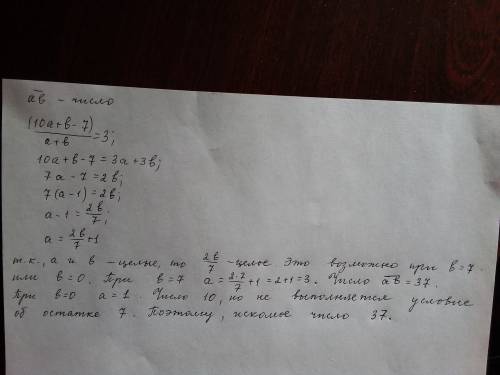 ав – число
(10а+в-7)/(а+в)=3;
10а+в-7=3а+3в;
7а-7=2в;
7(а-1)=2в;
а-1=2в/7;
а=2в/7+1
т.к., а и в – целые, то 2в/7 – целое. Это возможно при в=7.
или в=0. При в=7 а=2·7/7+1=2+1=3. Число ав=37.
При в=0 а=1. Число 10, но не выполняется условие
об остатке 7. Поэтому, искомое число 37.